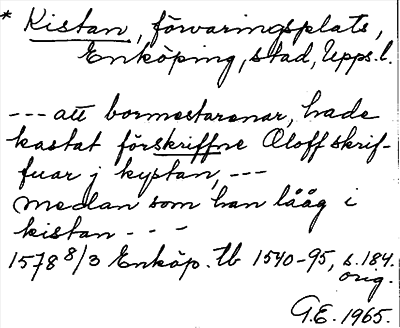 * Kistan, förvaringsplats,
Enköping, stad, Upps.l.
--- att bormestarenar, hade
kastat förskriffne Oloff skrif-
fuar j kystan, ---
medan som han lååg i
kistan - - -
1578 8/3 Enköp. tb 1540-95, s. 184.
orig.
G.E. 1965.